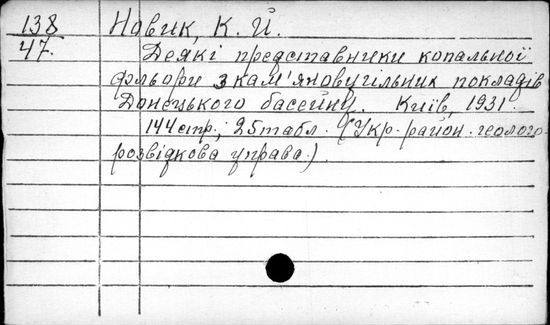 138 Новик, К. Й.
47. Деякі представники копальної
фльори з кам'яновугільних покладів
Донецького басейну. Київ, 1931.
144 стр., 25 табл. (Укр. район. геолого-
розвідкова управа.)